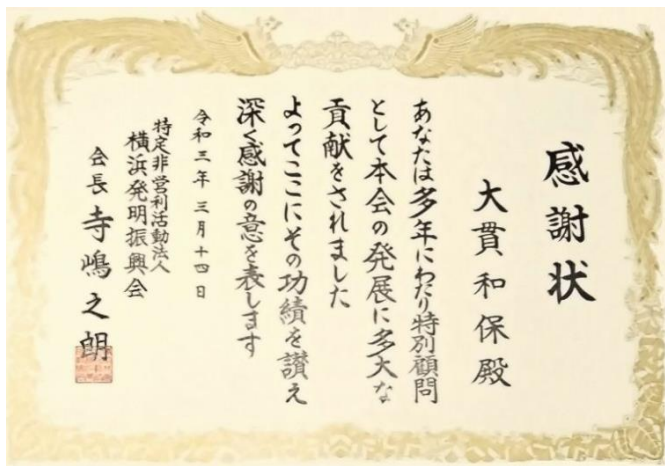 感謝状
大貫和保殿
あなたは多年にわたり特別顧問
として本会の発展に多大な
貢献をされました
よってここにその功績を讃え
深く感謝の意を表します
令和三年三月十四日
特定非営利活動法人
横浜発明振興会
会長 寺嶋之朗